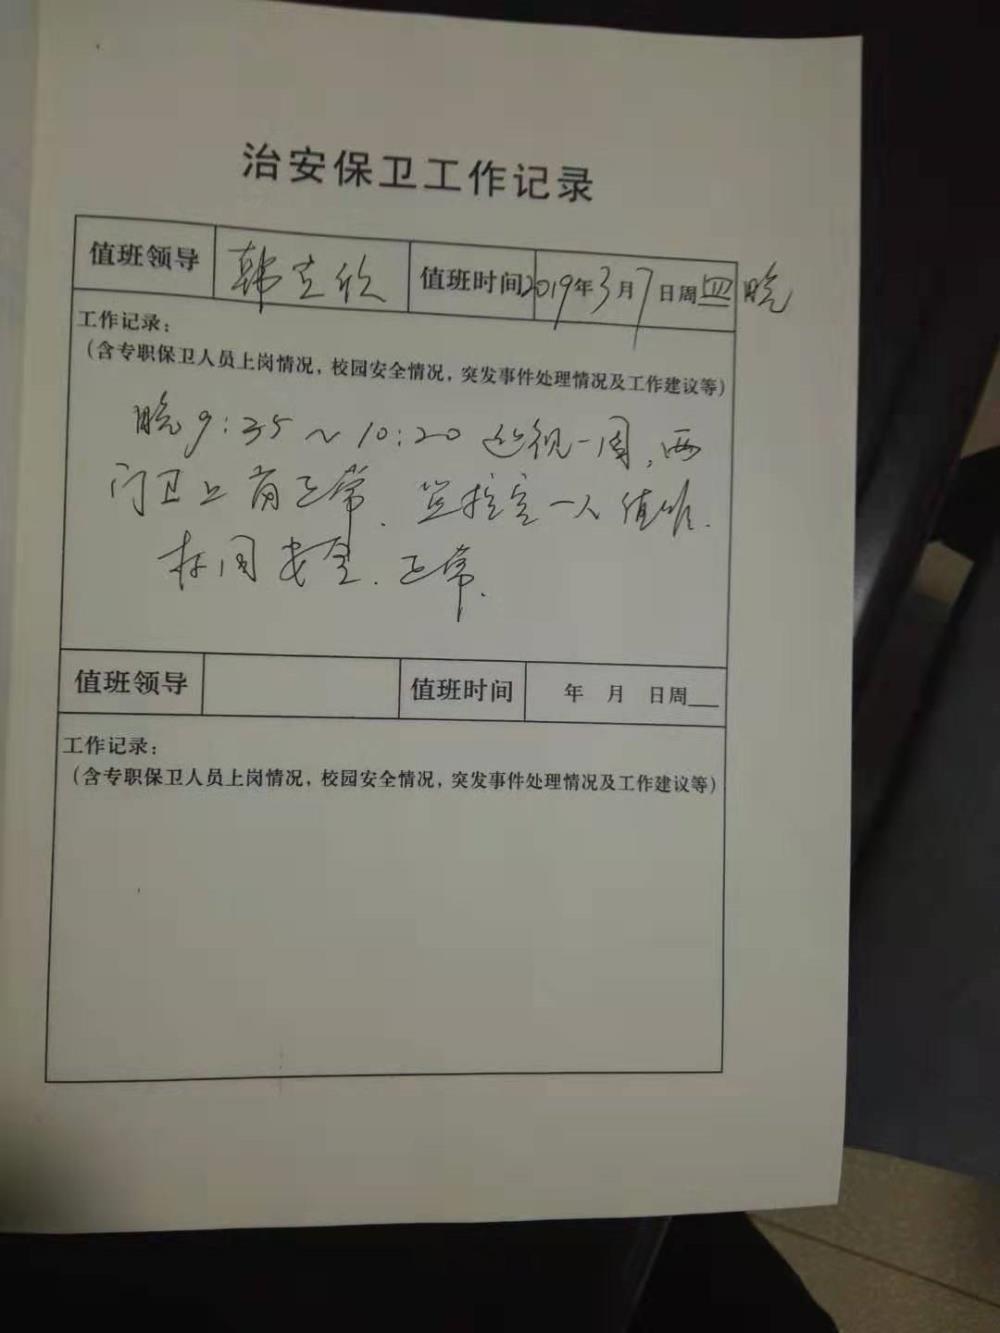 治安保卫工作记录
值班领导 韩克欣 值班时间 2019年3月7日周四晚
工作记录：
（含专职保卫人员上岗情况，校园安全情况，突发事件处理情况及工作建议等）
晚9:35～10:20 巡视一周，两
门卫上岗正常．监控室一人值班．
校园安全．正常．
值班领导 值班时间 年 月 日周
工作记录：
（含专职保卫人员上岗情况，校园安全情况，突发事件处理情况及工作建议等）